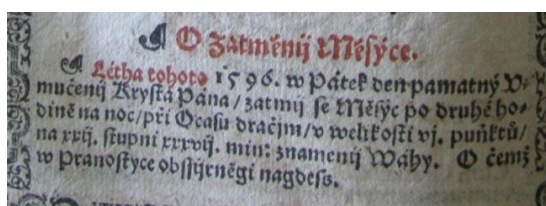 O Zatměnij Měsýce.
Létha tohoto 1596. w Pátek den pamatný V-
mučenij Krysta Pána / zatmij se Měsýc po druhé ho-
dině na noc / při Ocasu dračjm / w welikosti vj. puňktů /
na xxij. stupni xxxvij. min: znamenij Wáhy. O čemž
w Pranostyce obssýrněgi nagdess.